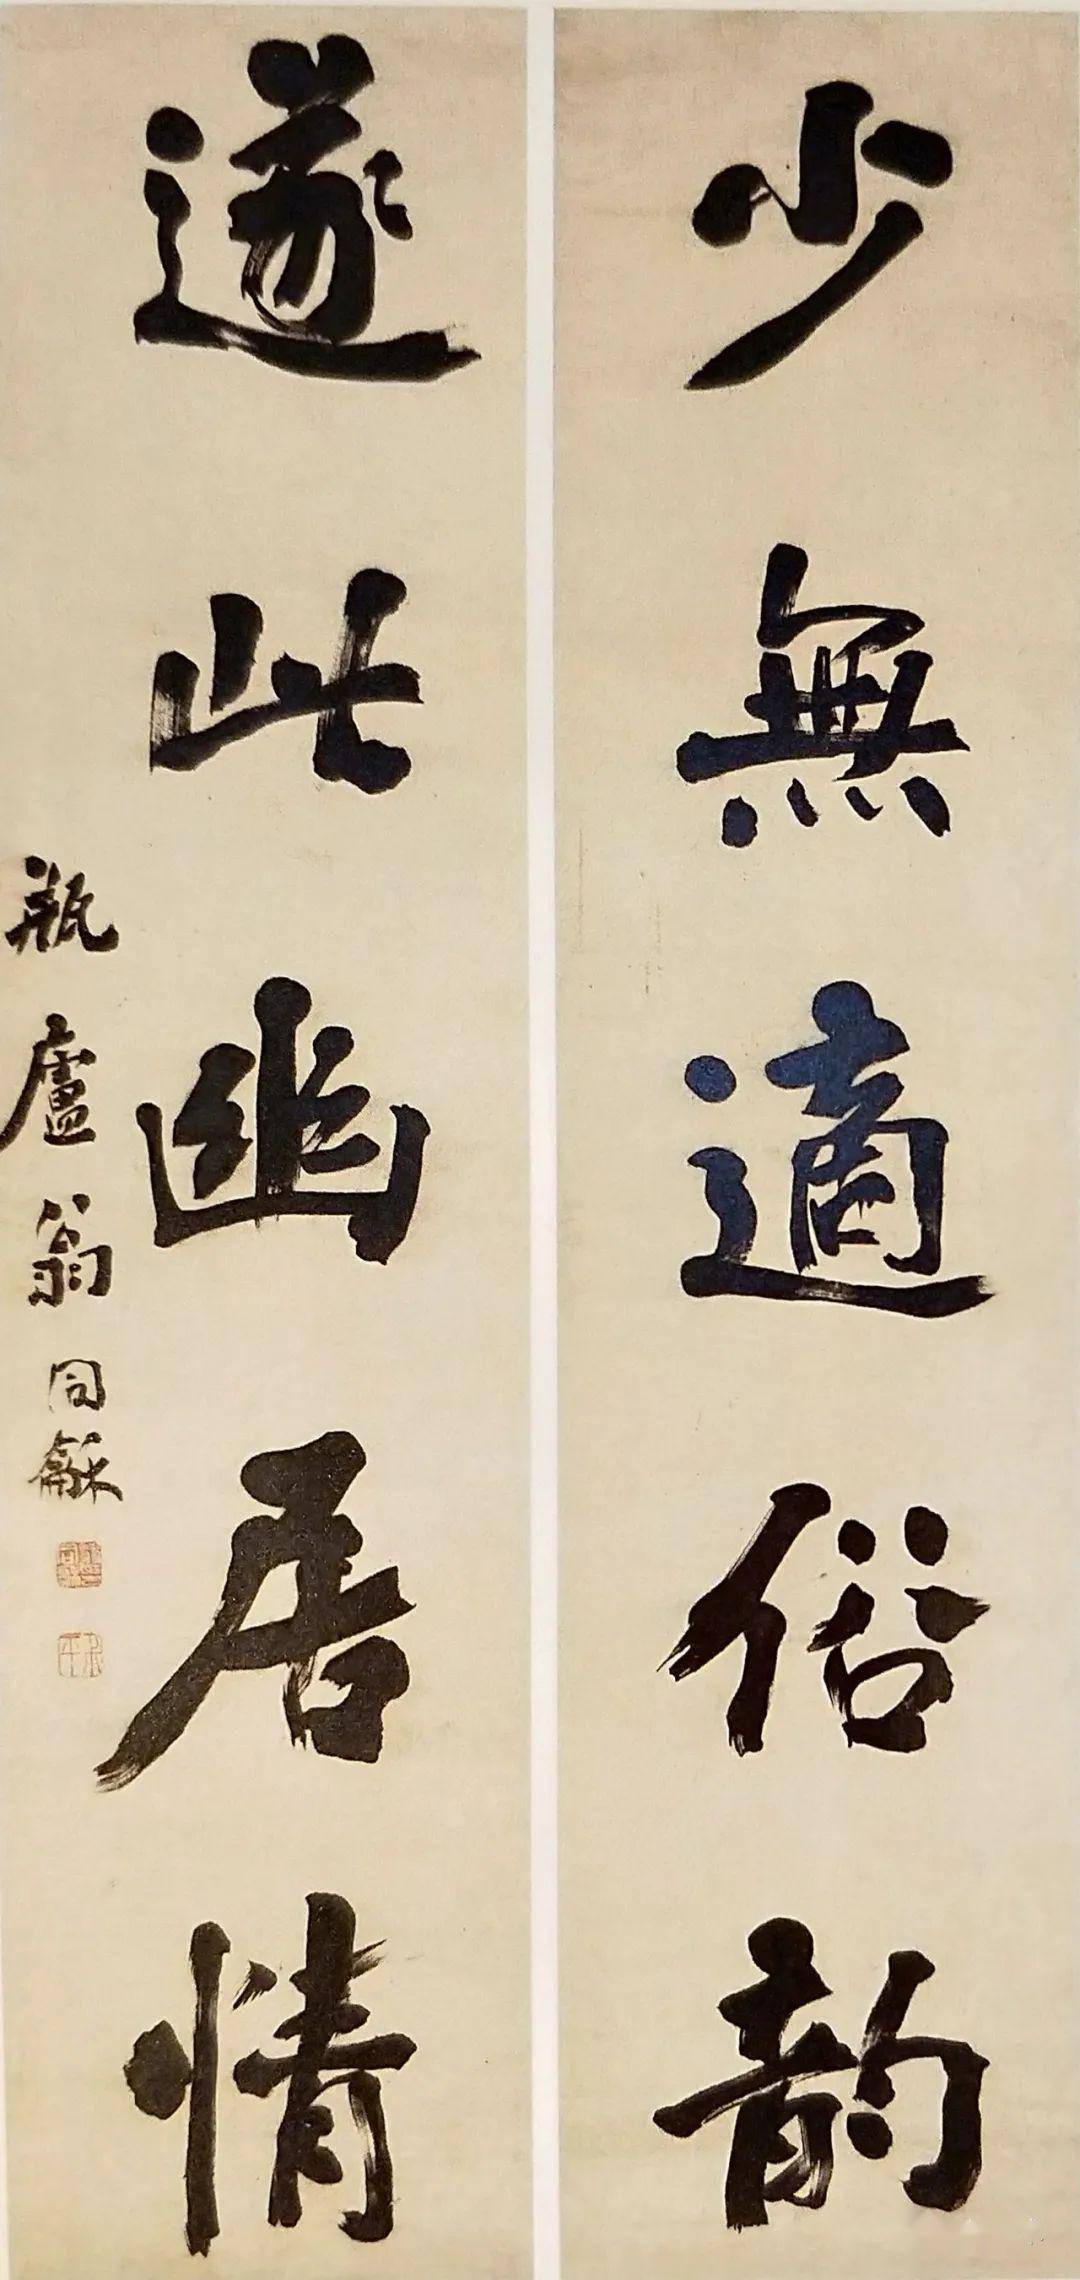 少無適俗韵
遂此幽居情
瓶廬翁同龢